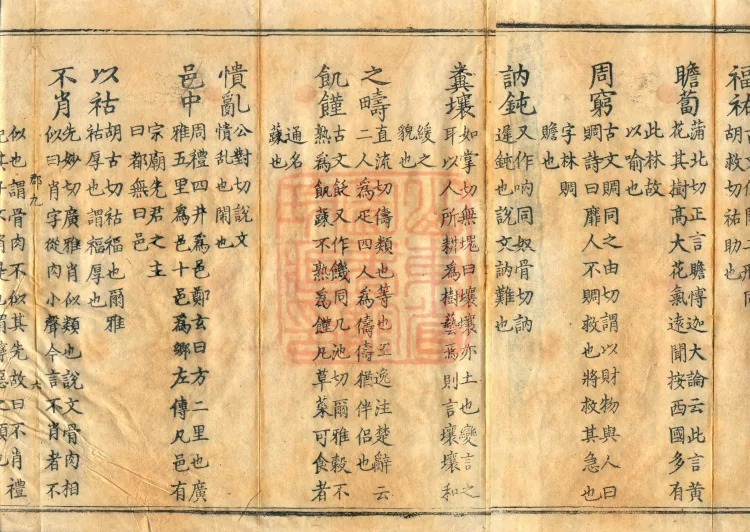 福祐
胡救切祐助也
瞻蔔
蒲北切正言瞻博迦大論云此言黃
花其樹高大花氣遠聞按西國多有
此林故
以喻也
周窮
古文賙同之由切謂以財物與人曰
賙詩曰靡人不賙救也將救其急也
字林賙
贍也
訥鈍
又作吶同奴骨切訥
遲鈍也說文訥難也
糞壤
如掌切無塊曰壤壤亦土也變言之
耳以人所耕為樹藝焉則言壤壤和
緩之
貌也
之疇
直流切儔類也等也王逸注楚辭云
二人為疋四人為儔儔猶伴侶也
飢饉
古文𩚮又作饑同几池切爾雅穀不
熟為飢蔬不熟為饉凡草菜可食者
通名
蔬也
憒亂
公對切說文
憒乱也閙也
邑中
周禮四井為邑鄭玄曰方二里也廣
雅五里為邑十邑為鄉左傳凡邑有
宗廟先君之主
曰都無曰邑
以祜
胡古切祜福也爾雅
祜厚也謂福厚也
不肖
先妙切廣雅肖似類也說文骨肉相
似曰肖字從肉小聲今言不肖者不
似也謂骨肉不似其先故曰不肖禮